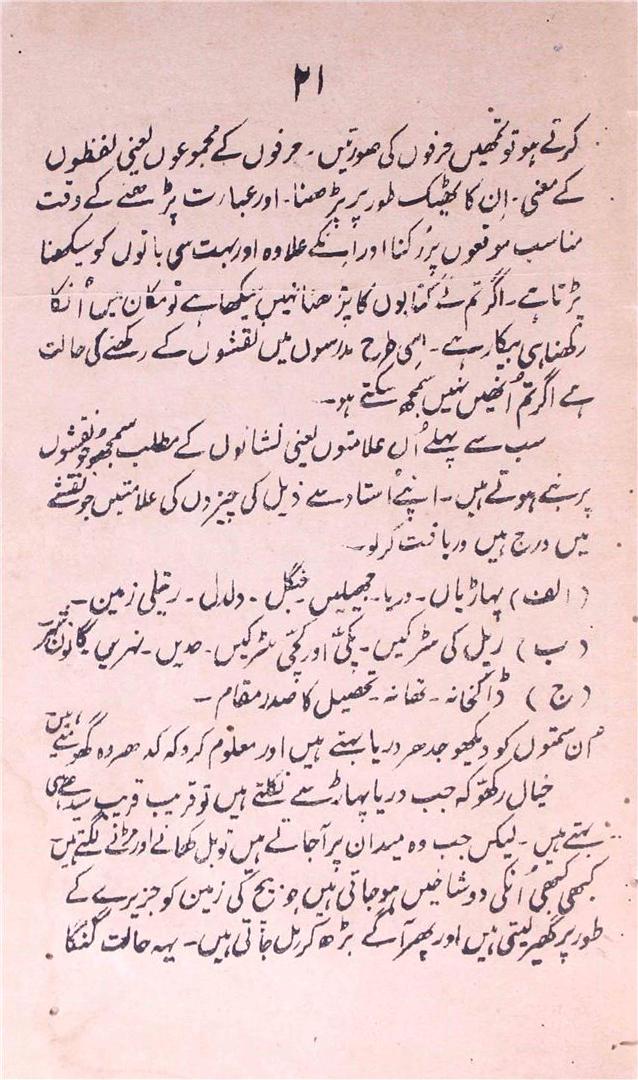 ۲۱
کرتے ہو تو تمھیں حرفوں کی صورتیں۔ حرفوں کے مجموعوں یعنی لفظوں
کے معنی۔ اِن کا ٹھیک طور پر پڑھنا۔ اور عبارت پڑھنے کے وقت
مناسب موقعوں پر رُکنا اور اِنکے علاوہ اور بہت سی باتوں کو سیکھنا
پڑتا ہے۔ اگر تم نے کتابوں کا پڑھنا نہیں سیکھا ہے تو مکان میں اُنکا
رکھنا ہی بیکار ہے۔ اِسی طرح مدرسوں میں نقشوں کے رکھنے کی حالت
ہے اگر تم اُنھیں نہیں سمجھ سکتے ہو۔
سب سے پہلے اُن علامتوں یعنی نشانوں کے مطلب سمجھو جو نقشوں
پر بنے ہوتے ہیں۔ اپنے اُستاد سے ذیل کی چیزوں کی علامتیں جو نقشے
میں درج ہیں دریافت کرلو۔
(الف) پہاڑیاں۔ دریا۔ جھیلیں۔ جنگل۔ دلدل۔ رتیلی زمین۔
(ب) ریل کی سڑکیں۔ پکّی اور کچّی سڑکیں۔ حدیں۔ نہریں۔ گانوں شہر
(ج) ڈاکخانہ۔ تھانہ۔ تحصیل کا صدر مقام۔
اُن سمتوں کو دیکھو جدھر دریا بہتے ہیں اور معلوم کرو کہ کدھر وہ گھومتے ہیں
خیال رکھّو کہ جب دریا پہاڑ سے نکلتے ہیں تو قریب قریب سیدھے ہی
بہتے ہیں۔ لیکن جب وہ میدان پر آجاتے ہیں تو بل کھانے اور مڑنے لگتے ہیں
کبھی کبھی اُنکی دو شاخیں ہو جاتی ہیں جو بیچ کی زمین کو جزیرے کے
طور پر گھیر لیتی ہیں اور پھر آگے بڑھ کر مل جاتی ہیں۔ یہہ حالت گنگا